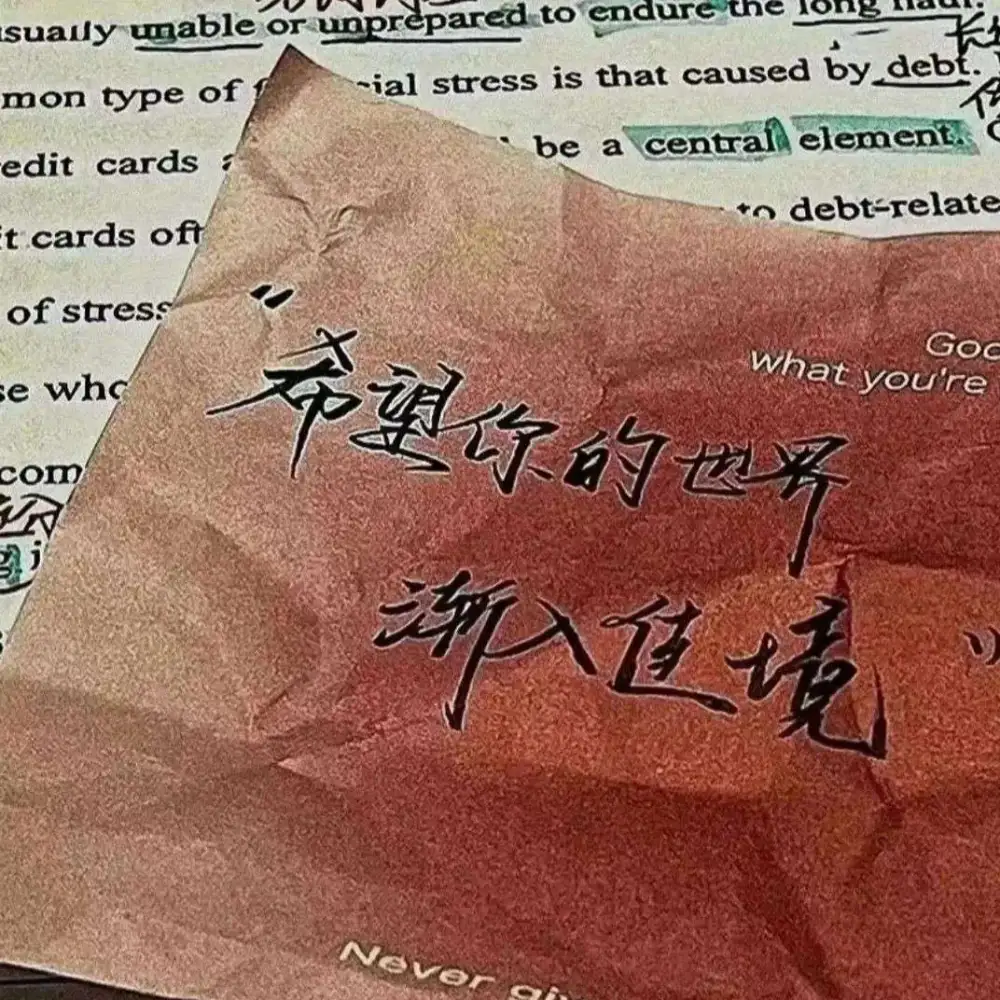 usually unable or unprepared to endure the long haul.
mon type of stress is that caused by debt.
edit cards be a central element.
it cards to debt-relate
of stress
se who
com
what you're
"希望你的世界
渐入佳境"
Never